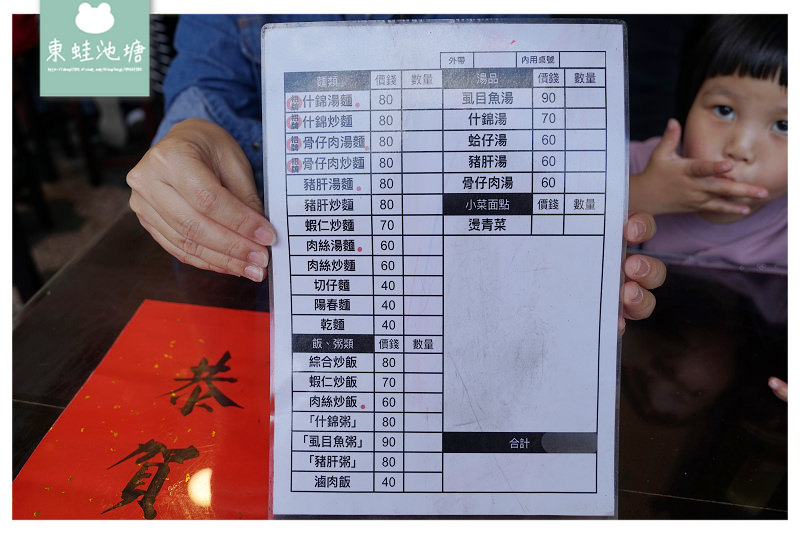 東蛙池塘
外帶 內用桌號
麵類 價錢 數量
招牌 什錦湯麵 80
招牌 什錦炒麵 80
招牌 骨仔肉湯麵 80
招牌 骨仔肉炒麵 80
豬肝湯麵 80
豬肝炒麵 80
蝦仁炒麵 70
肉絲湯麵 60
肉絲炒麵 60
切仔麵 40
陽春麵 40
乾麵 40
飯、粥類 價錢 數量
綜合炒飯 80
蝦仁炒飯 70
肉絲炒飯 60
「什錦粥」 80
「虱目魚粥」 90
「豬肝粥」 80
滷肉飯 40
湯品 價錢 數量
虱目魚湯 90
什錦湯 70
蛤仔湯 60
豬肝湯 60
骨仔肉湯 60
小菜面點 價錢 數量
燙青菜
合計
恭
賀